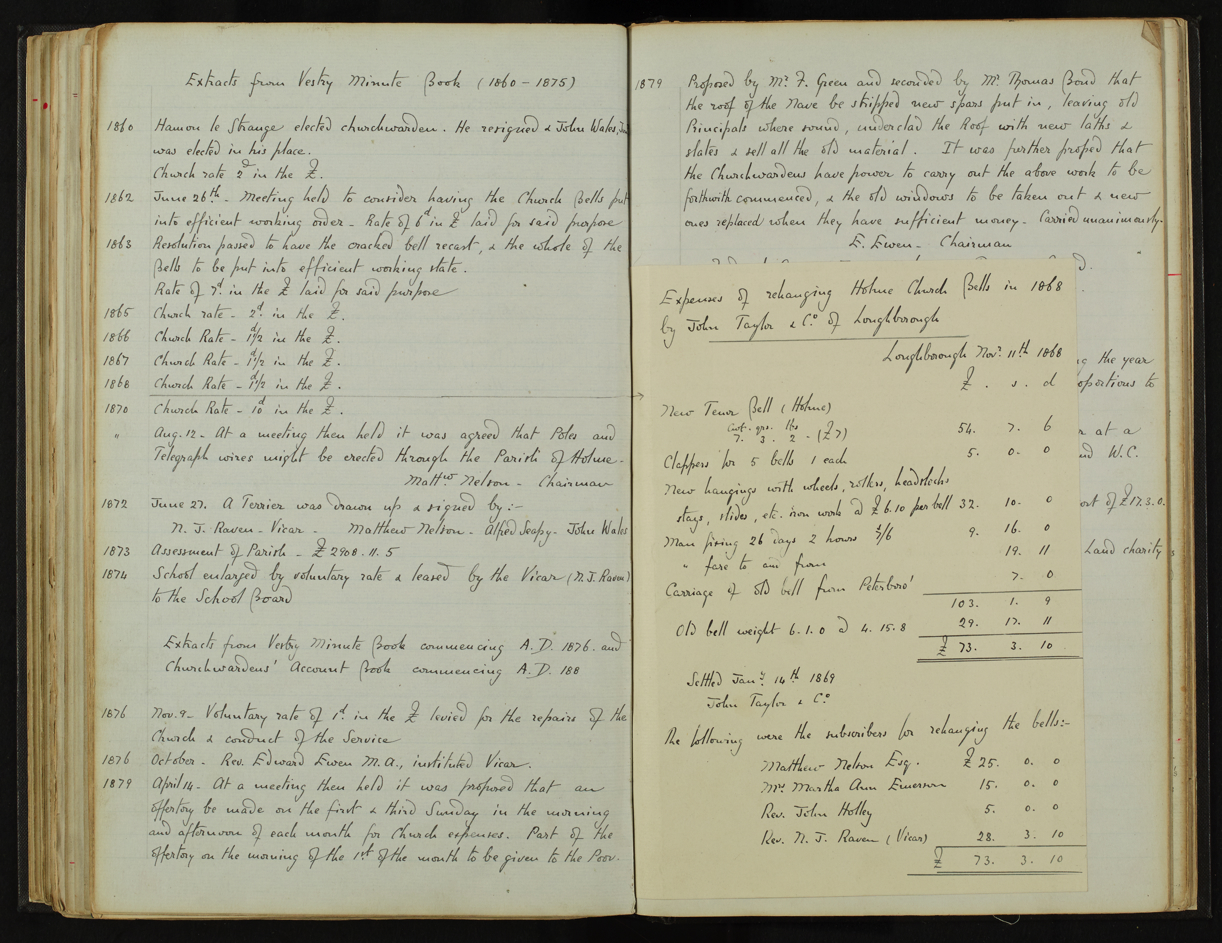 Extracts from Vestry Minute Book (1860 - 1875)
1860 Hamon le Strange elected churchwarden. He resigned & John Wales,
was elected in his place.
Church rate 2d in the £.
1862 June 26th - Meeting held to consider having the Church Bells put
into efficient working order - Rate of 6d in £ laid for said purpose
1863 Resolution passed to have the cracked bell recast, & the whole of the
Bells to be put into efficient working state.
Rate of 7d. in the £ laid for said purpose
1865 Church rate - 2d. in the £.
1866 Church Rate - 1d1/2 in the £.
1867 Church Rate - 1d1/2 in the £.
1868 Church Rate - 1d1/2 in the £.
1870 Church Rate - 10d in the £.
" Aug. 12 - At a meeting then held it was agreed that Poles and
Telegraph wires might be erected through the Parish of Holme -
Matthw Nelson - Chairman
1872 June 27. A Terrier was drawn up & signed by :-
N. J. Raven - Vicar - Matthew Nelson - Alfred Seapy - John Wales
1873 Assessment of Parish - £2908. 11. 5
1874 School enlarged by voluntary rate & leased by the Vicar (N. J. Raven)
to the School Board
Extracts from Vestry Minute Book commencing A.D. 1876. and
Churchwardens' Account Book commencing A.D. 188
1876 Nov. 9 - Voluntary rate of 1d. in the £ levied for the repairs of the
Church & conduct of the Service
1876 October - Rev. Edward Ewen M.A., instituted Vicar.
1879 April 14 - At a meeting then held it was proposed that an
offertory be made on the first & third Sunday in the morning
and afternoon of each month for Church expenses. Part of the
offertory on the morning of the 1st of the month to be given to the Poor.
1879 Proposed by Mr. F. Green and seconded by Mr. Thomas Bond that
the roof of the Nave be stripped new spars put in, leaving old
Principals where sound, underclad the Roof with new laths &
slates & sell all the old material. It was further proposed that
the Churchwardens have power to carry out the above work to be
forthwith commenced, & the old windows to be taken out & new
ones replaced when they have sufficient money - Carried unanimously.
E. Ewen - Chairman
Expenses of rehanging Holme Church Bells in 1868
by John Taylor & Co. of Loughborough
Loughborough Novr. 11th 1868
£ . s . d
New Tenor Bell (Holme)
Cwt. qrs. lbs
7. 3. 2 - (£7) 54. 7. 6
Clappers for 5 bells 1 each 5. 0. 0
New hangings with wheels, rollers, headstocks
stays, slides, etc. iron work @ £6.10 per bell 32. 10. 0
Man fixing 26 days 2 hours 7/6 9. 16. 0
" fare to and from 19. 11
Carriage of old bell from Peterboro' 7. 0
103. 1. 9
Old bell weight 6. 1. 0 @ 4. 15. 8 29. 17. 11
£ 73. 3. 10
Settled Jany. 14th 1869
John Taylor & Co.
The following were the subscribers for rehanging the bells:-
Matthew Nelson Esq. £ 25. 0. 0
Mrs Martha Ann Emerson 15. 0. 0
Rev. John Holley 5. 0. 0
Rev. N. J. Raven (Vicar) 28. 3. 10
£ 73. 3. 10
the year
oportions to
at a
W.C.
of £17.3.0.
Land charity